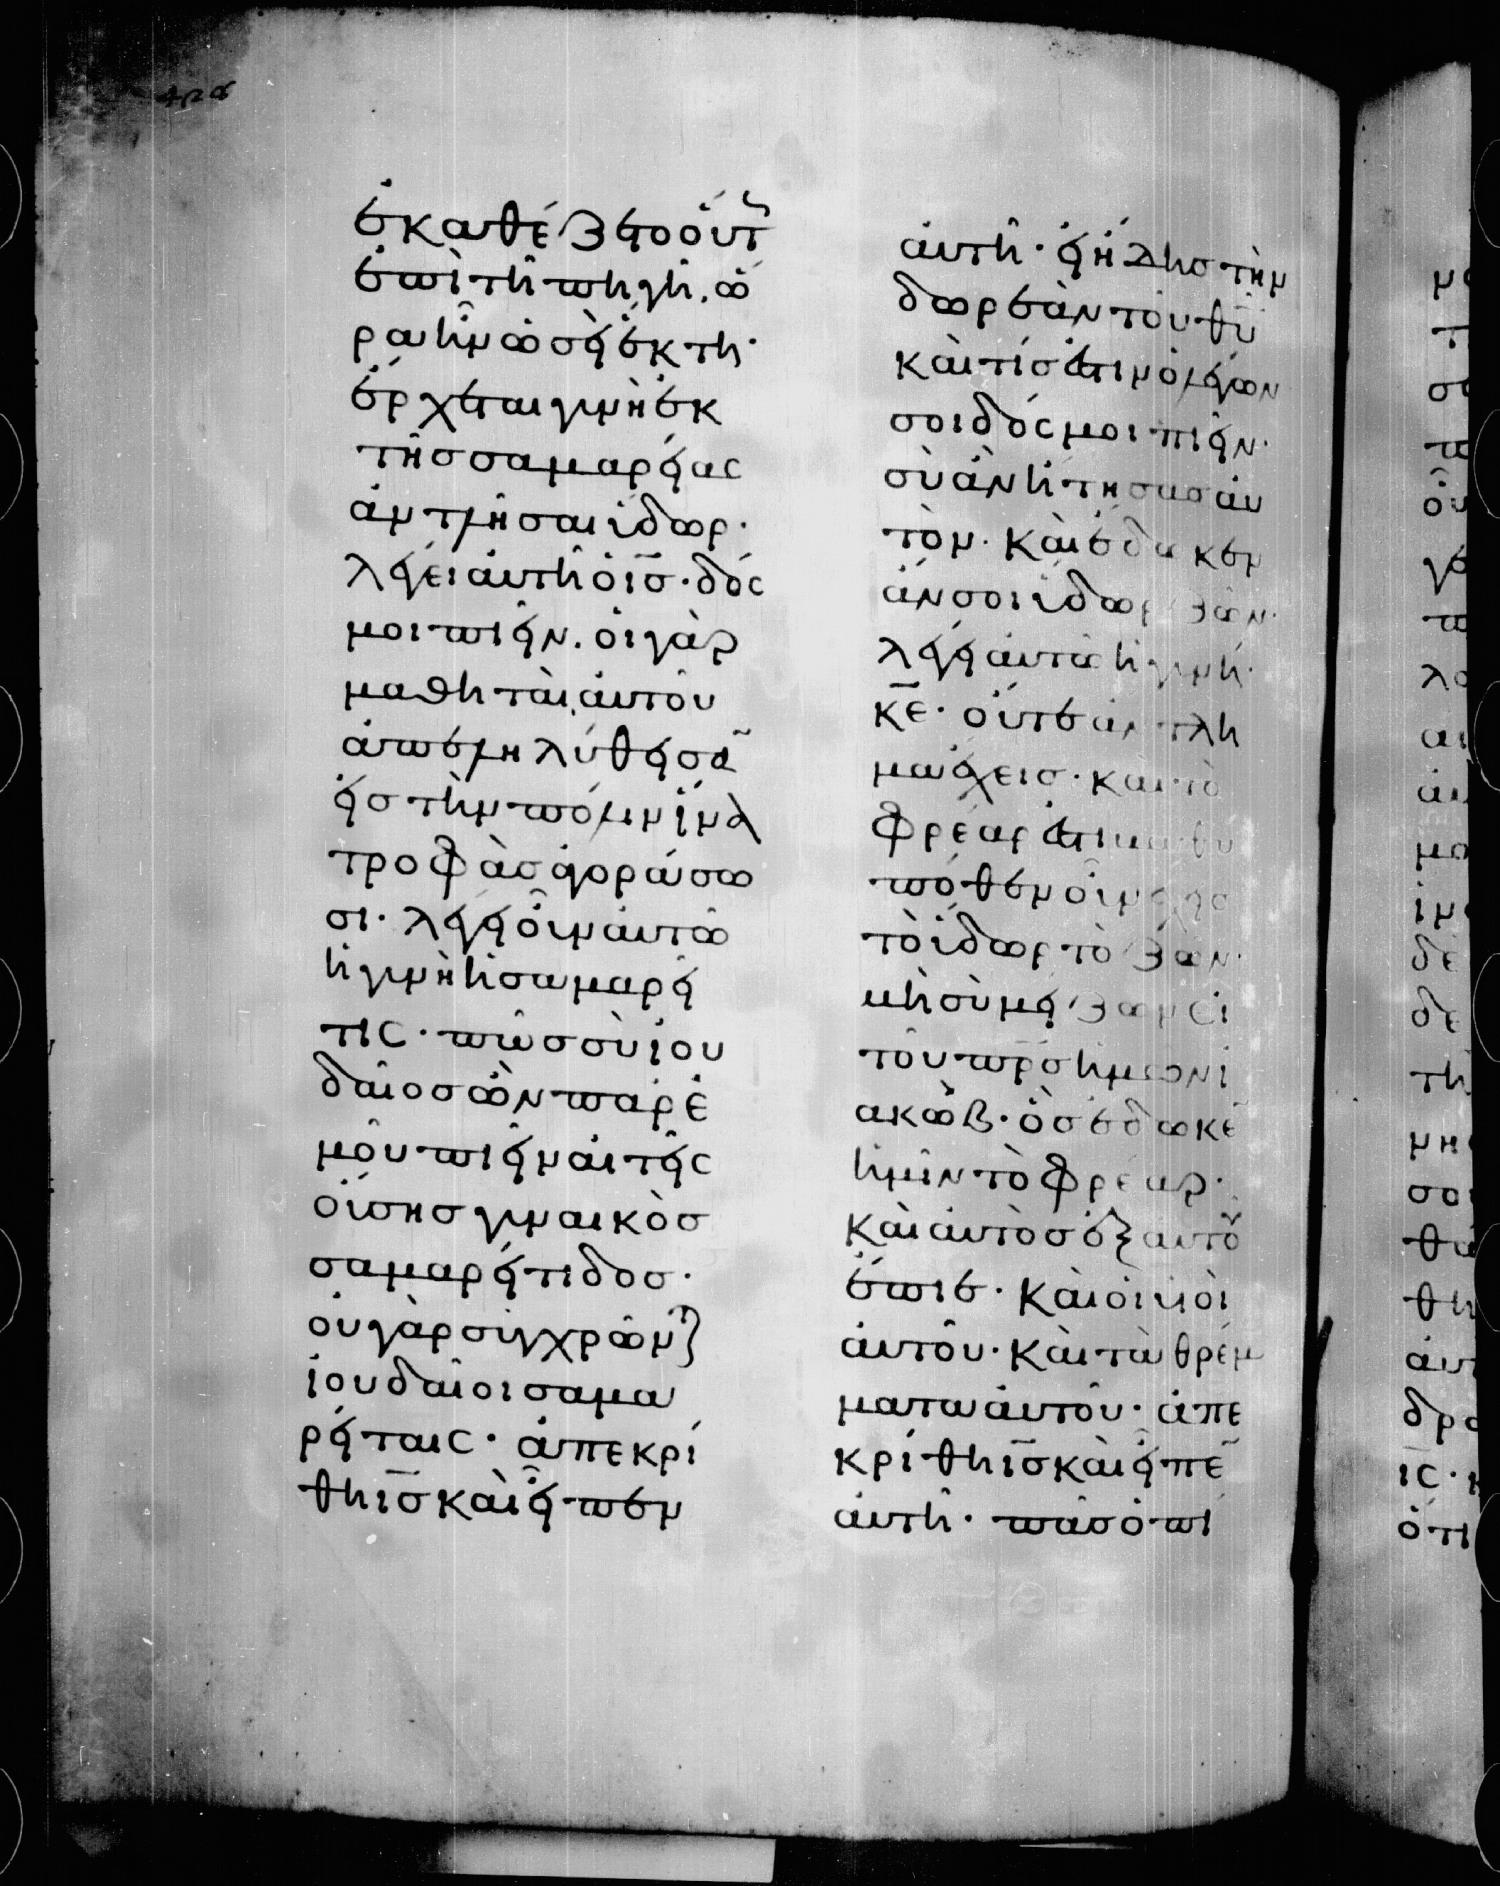 ἐκαθέζετο οὕτ
ἐπὶ τῆ πηγῆ, ὥ
ρα ἦν ὡσεὶ ἕκτη·
ἔρχεται γυνὴ ἐκ
τῆς σαμαρείας
ἀντλῆσαι ὕδωρ·
λέγει αὐτῆ ὁ ις̅· δός
μοι πιεῖν. οἱ γὰρ
μαθηταὶ αὐτοῦ
ἀπεληλύθεισα̅
εἰς τὴν πόλιν ἵνα
τροφὰς ἀγοράσω
σι· λέγει οὖν αὐτῶ
ἡ γυνὴ ἡ σαμαρεῖ
τις· πῶς σὺ ἰου
δαῖος ὢν παρ ἐ
μοῦ πιεῖν αἰτεῖς
οὔσης γυναικὸς
σαμαρείτιδος·
οὐ γὰρ συγχρῶντ
ἰουδαῖοι σαμα
ρείταις· ἀπεκρί
θη ις̅ καὶ εἶπεν
αὐτῆ· εἰ ἤδης τὴν
δωρεὰν τοῦ θυ̅
καὶ τίς ἐστιν ὁ λέγων
σοι δός μοι πιεῖν·
σὺ ἂν ἤτησας αὐ
τὸν· καὶ ἔδωκεν
ἄν σοι ὕδωρ ζῶν·
λέγει αὐτῶ ἡ γυνή·
κε̅· οὔτε ἄντλη
μα ἔχεις· καὶ τὸ
φρέαρ ἐστὶ βαθύ
πόθεν οὖν ἔχεις
τὸ ὕδωρ τὸ ζῶν·
μὴ σὺ μείζων εἶ
τοῦ πρς̅ ἡμῶν ἰ
ακώβ· ὃς ἔδωκε̅
ἡμῖν τὸ φρέαρ·
καὶ αὐτὸς ἐξ αὐτοῦ
ἔπιε· καὶ οἱ υἱοὶ
αὐτοῦ· καὶ τὰ θρέμ
ματα αὐτοῦ· ἀπε
κρίθη ις̅ καὶ εἶπε̅
αὐτῆ· πᾶς ὁ πί